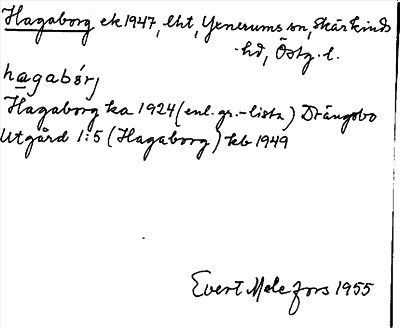 Hagaborg ek 1947, lht, Yxnerums sn, Skärkinds
hd, Östg. l.
hagabórj
Hagaborg ka 1924 (enl. gr.-lista) Drängsbo
Utgård 1:5 (Hagaborg) kb 1949
Evert Melefors 1955